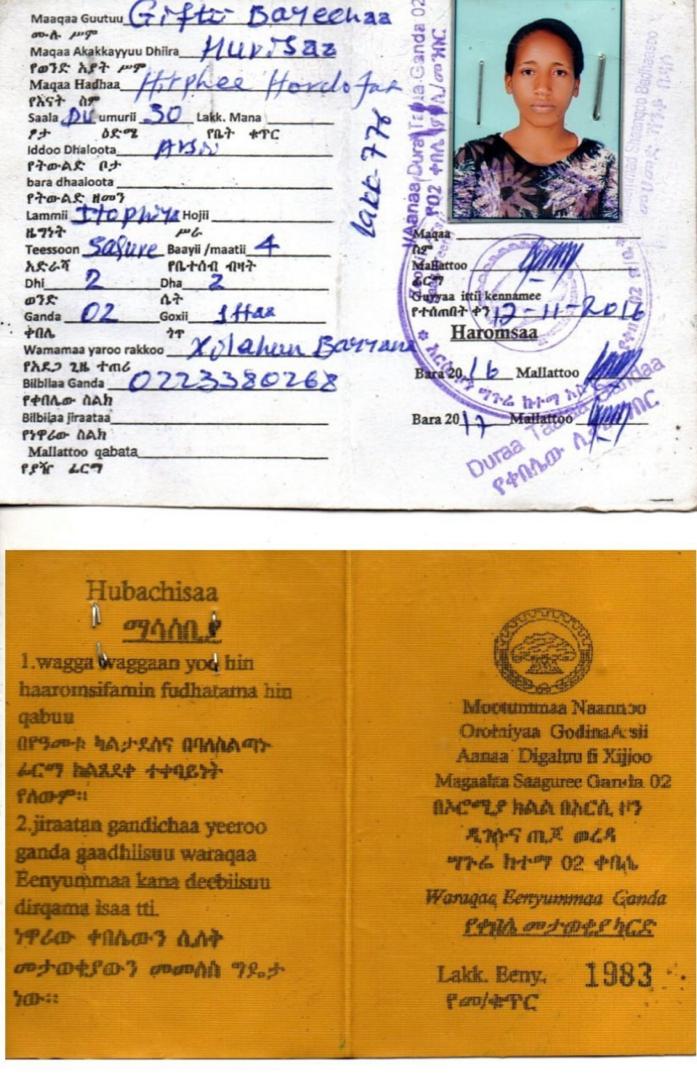 Maaqaa Guutuu Giftii Bareechaa
ሙሉ ሥም
Maqaa Akakkayyuu Dhiira Hurisaa
የወንድ አያት ሥም
Maqaa Hadhaa Hirphee Hordofaa
የእናት ስም
Saala Du umurii 30 Lakk. Mana
ፆታ ዕድሜ የቤት ቁጥር
Iddoo Dhaloota Arsi
የትውልድ ቦታ
bara dhaaloota
የትውልድ ዘመን
Lammii Itophiya Hojii
ዜግነት ሥራ
Teessoon Sagure Baayii /maatii 4
አድራሻ የቤተሰብ ብዛት
Dhi 2 Dha 2
ወንድ ሴት
Ganda 02 Goxii
ቀበሌ ጎጥ
Wamamaa yaroo rakkoo
የአደጋ ጊዜ ተጠሪ
Bilbilaa Ganda 0223380268
የቀበሌው ስልክ
Bilbilaa jiraataa
የነዋሪው ስልክ
Mallattoo qabata
የያዥ ፊርማ
Lakk 776
Maqaa
ስም
Mallattoo
ፊርማ
Guyyaa ittii kennamee
የተሰጠበት ቀን 12-11-2016
Haromsaa
Bara 2016 Mallattoo
Bara 2017 Mallattoo
Hubachisaa
ማሳሰቢያ
1.wagga waggaan yoo hin
haaromsifamin fudhatama hin
qabuu
በየዓመቱ ካልታደሰና በባለስልጣኑ
ፊርማ ካልጸደቀ ተቀባይነት
የለውም።
2.jiraatan gandichaa yeeroo
ganda gaadhiisuu waraqaa
Eenyummaa kana deebiisuu
dirqama isaa tti.
ነዋሪው ቀበሌውን ሲለቅ
መታወቂያውን መመለስ ግዴታ
ነው።
Mootummaa Naannoo
Oromiyaa Godina Arsii
Aanaa Digaluu fi Xijjoo
Magaalaa Saaguree Ganda 02
በኦሮሚያ ክልል በአርሲ ዞን
ዲገሉና ጢጆ ወረዳ
ሣጉሬ ከተማ 02 ቀበሌ
Waraqaa Eenyummaa Ganda
የቀበሌ መታወቂያ ካርድ
Lakk. Eeny. 1983
የመ/ቁጥር